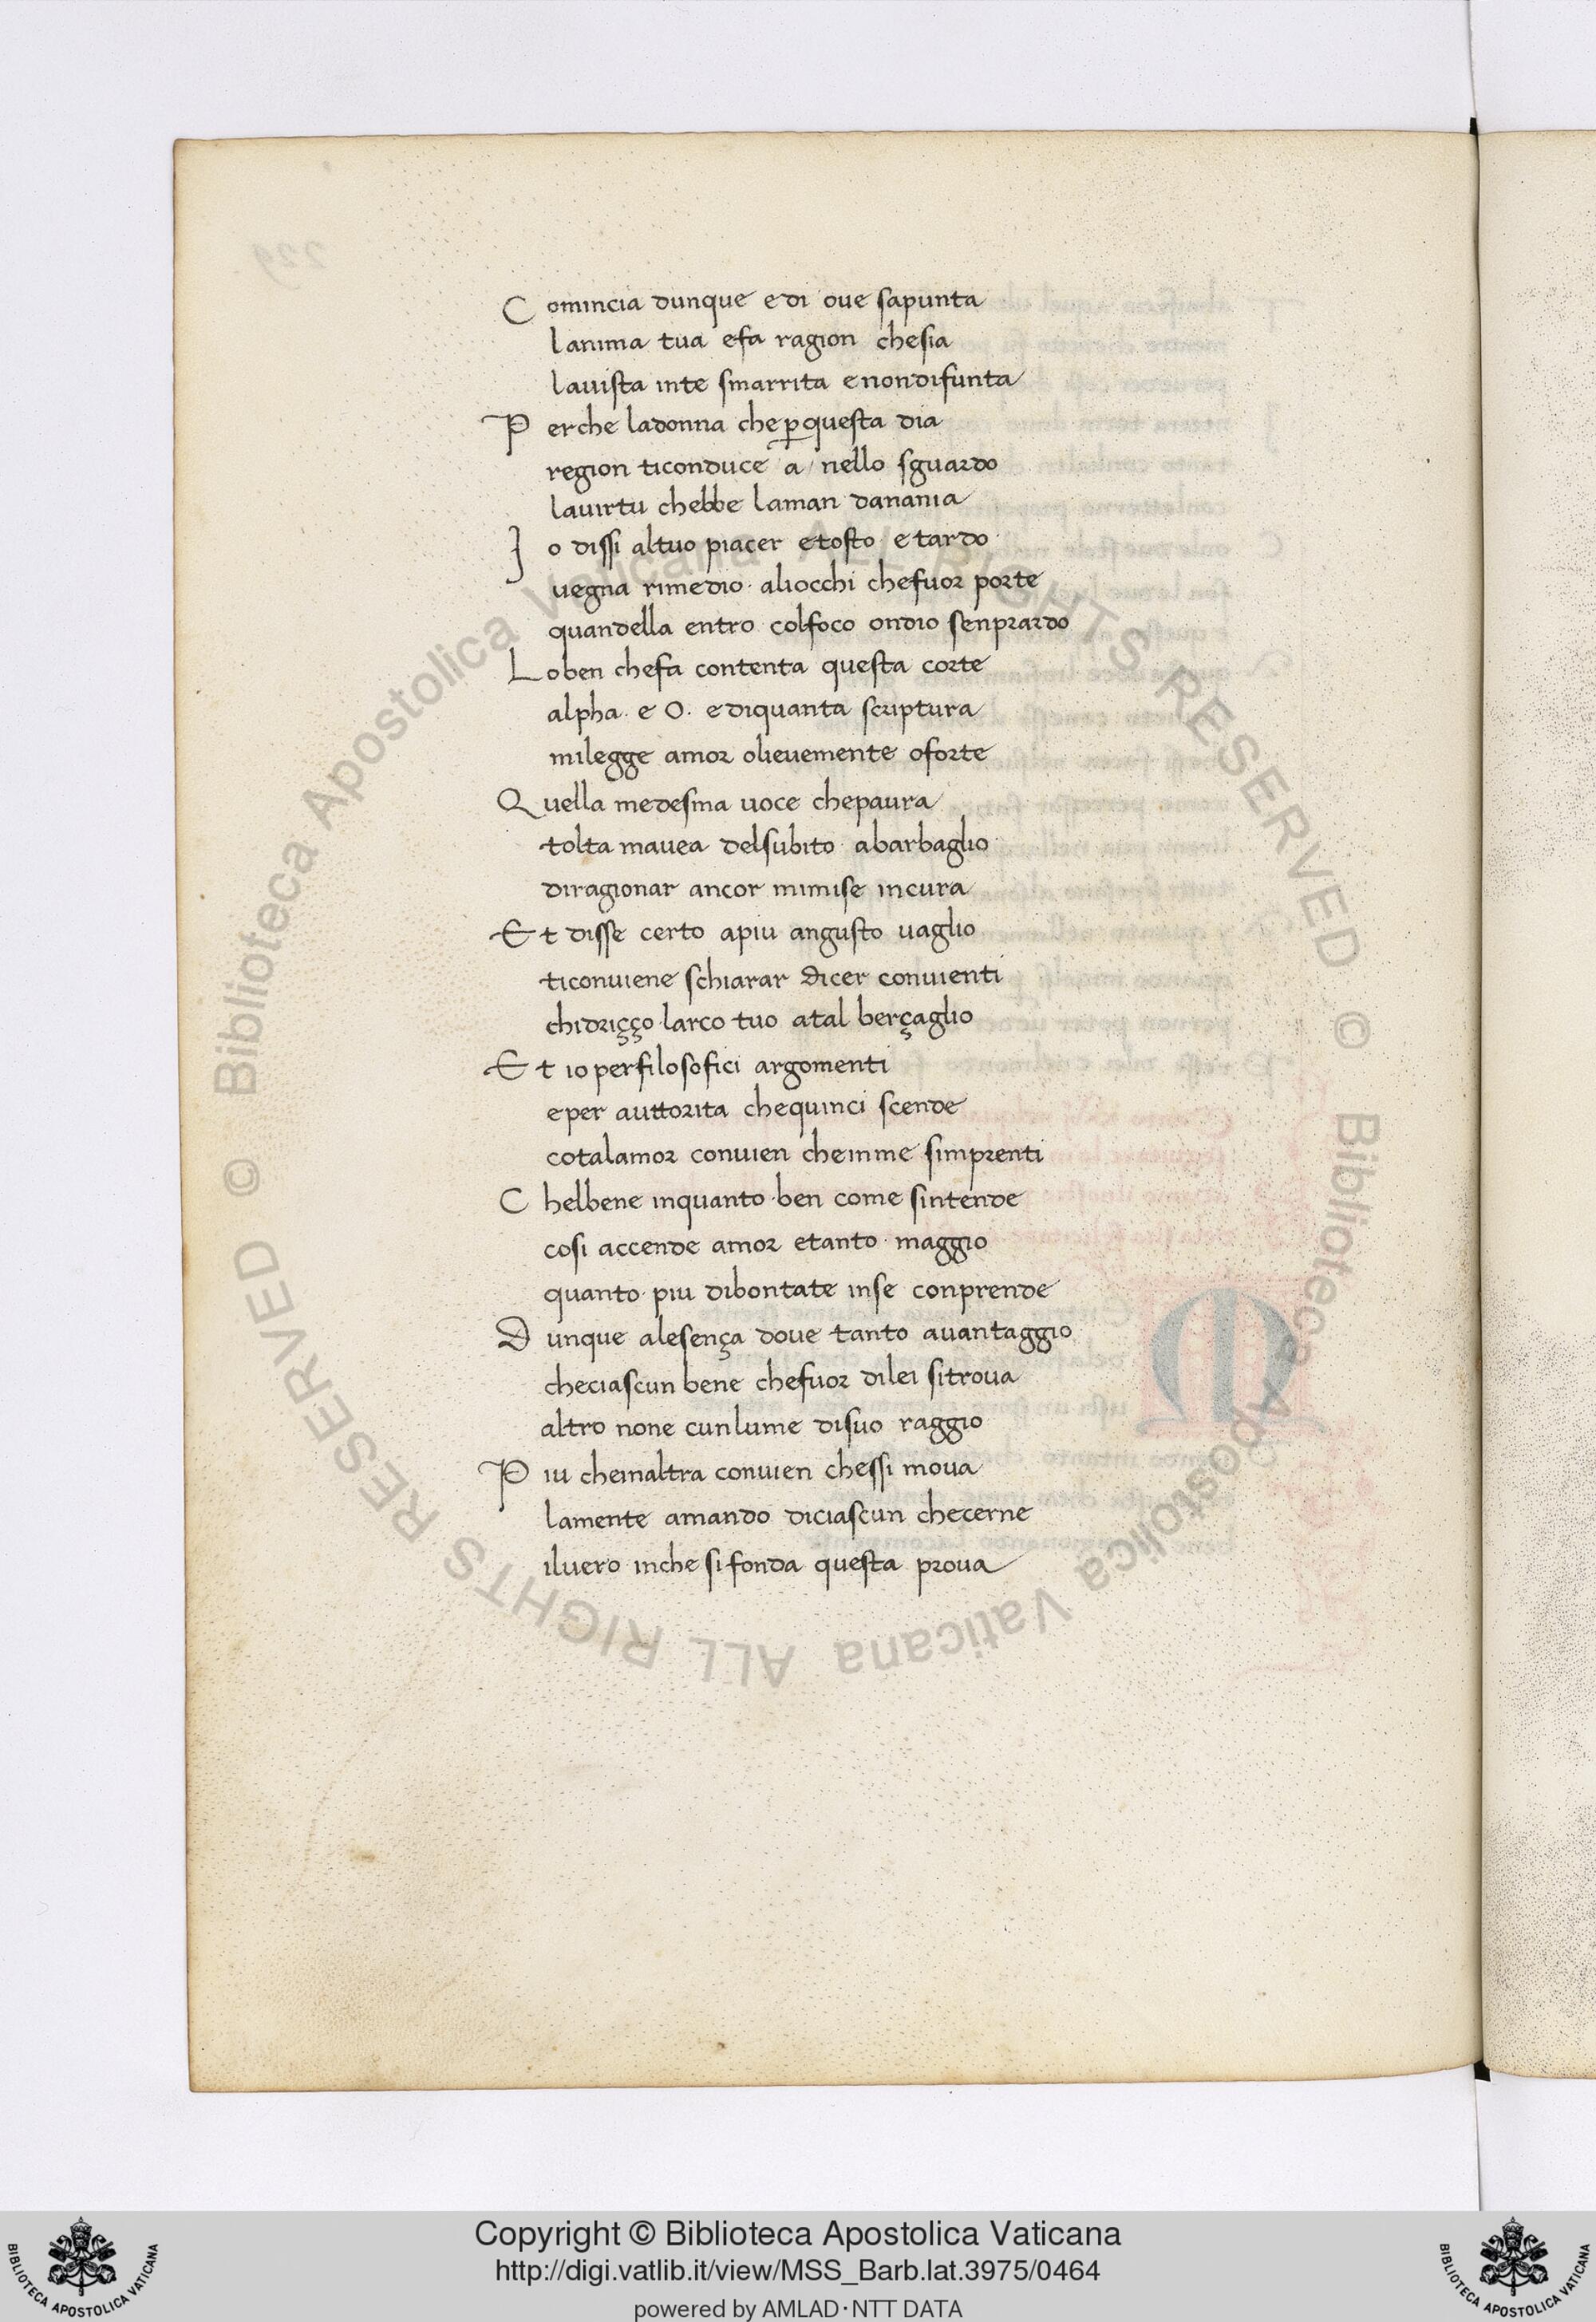 Comincia dunque edi oue sapunta
lanima tua efa ragion chesia
lauista inte smarrita enondifunta
Perche ladonna che ꝑquesta dia
region ticonduce a nello sguardo
lauirtu chebbe laman danania
Io dissi altuo piacer etosto etardo
uegna rimedio· aliocchi chefuor porte
quandella entro colfoco ondio senprardo
Loben chefa contenta questa corte
alpha· e O· ediquanta scriptura
milegge amor olieuemente oforte
Quella medesma uoce chepaura
tolta mauea delsubito abarbaglio
diragionar ancor mimise incura
Et disse certo apiu angusto uaglio
ticonuiene schiarar dicer conuienti
chidriçço larco tuo atal berçaglio
Et io perfilosofici argomenti
eper auttorita chequinci scende
cotalamor conuien cheinme simprenti
Chelbene inquanto·ben come sintende
cosi accende amor etanto maggio
quanto piu dibontate inse conprende
Dunque alesença doue tanto auantaggio
checiascun bene chefuor dilei sitroua
altro none cunlume disuo raggio
Piu cheinaltra conuien chessi moua
lamente amando diciascun checerne
iluero inche si fonda questa proua
229
© Biblioteca Apostolica Vaticana ALL RIGHTS RESERVED
© Biblioteca Apostolica Vaticana ALL RIGHTS RESERVED
Copyright © Biblioteca Apostolica Vaticana
http://digi.vatlib.it/view/MSS_Barb.lat.3975/0464
powered by AMLAD·NTT DATA
BIBLIOTECA APOSTOLICA VATICANA
BIBLIOTECA APOSTOLICA VATICANA